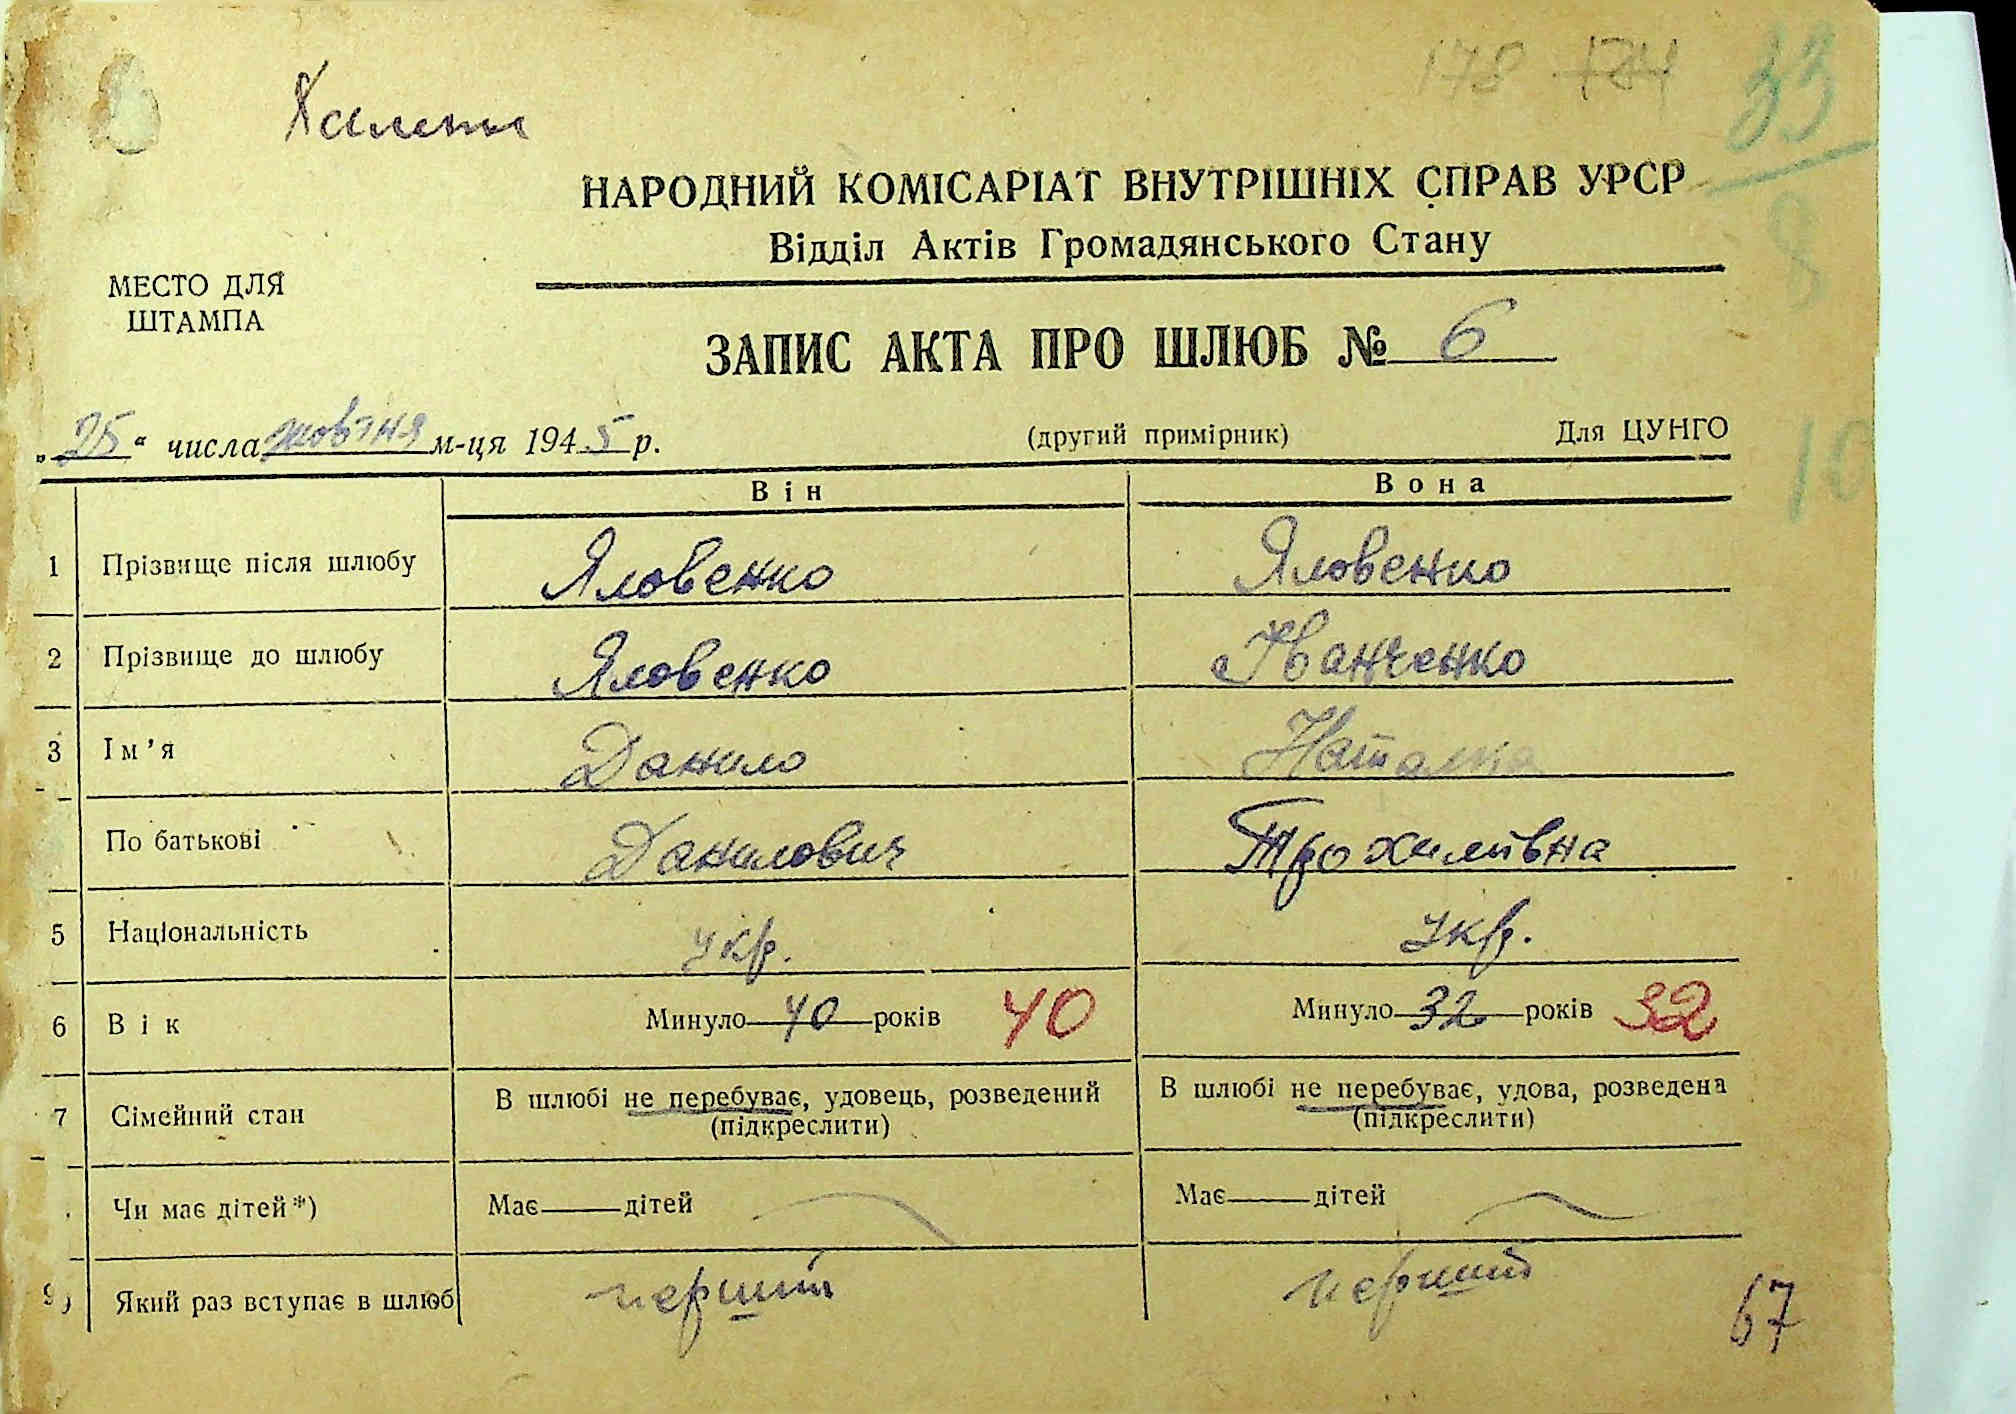 178 174 33
Халепя
8
НАРОДНИЙ КОМІСАРІАТ ВНУТРІШНІХ СПРАВ УРСР
Відділ Актів Громадянського Стану
МЕСТО ДЛЯ
ШТАМПА
ЗАПИС АКТА ПРО ШЛЮБ № 6
„25“ числа жовтня м-ця 1945 р. (другий примірник) Для ЦУНГО
10
Він Вона
1 Прізвище після шлюбу Яловенко Яловенко
2 Прізвище до шлюбу Яловенко Іванченко
3 Ім’я Данило Наталка
По батькові Данилович Трохимівна
5 Національність укр. укр.
6 Вік Минуло 40 років 40 Минуло 32 років 32
7 Сімейний стан В шлюбі не перебуває, удовець, розведений (підкреслити) В шлюбі не перебуває, удова, розведена (підкреслити)
Чи має дітей*) Має — дітей Має — дітей
9 Який раз вступає в шлюб перший перший
67